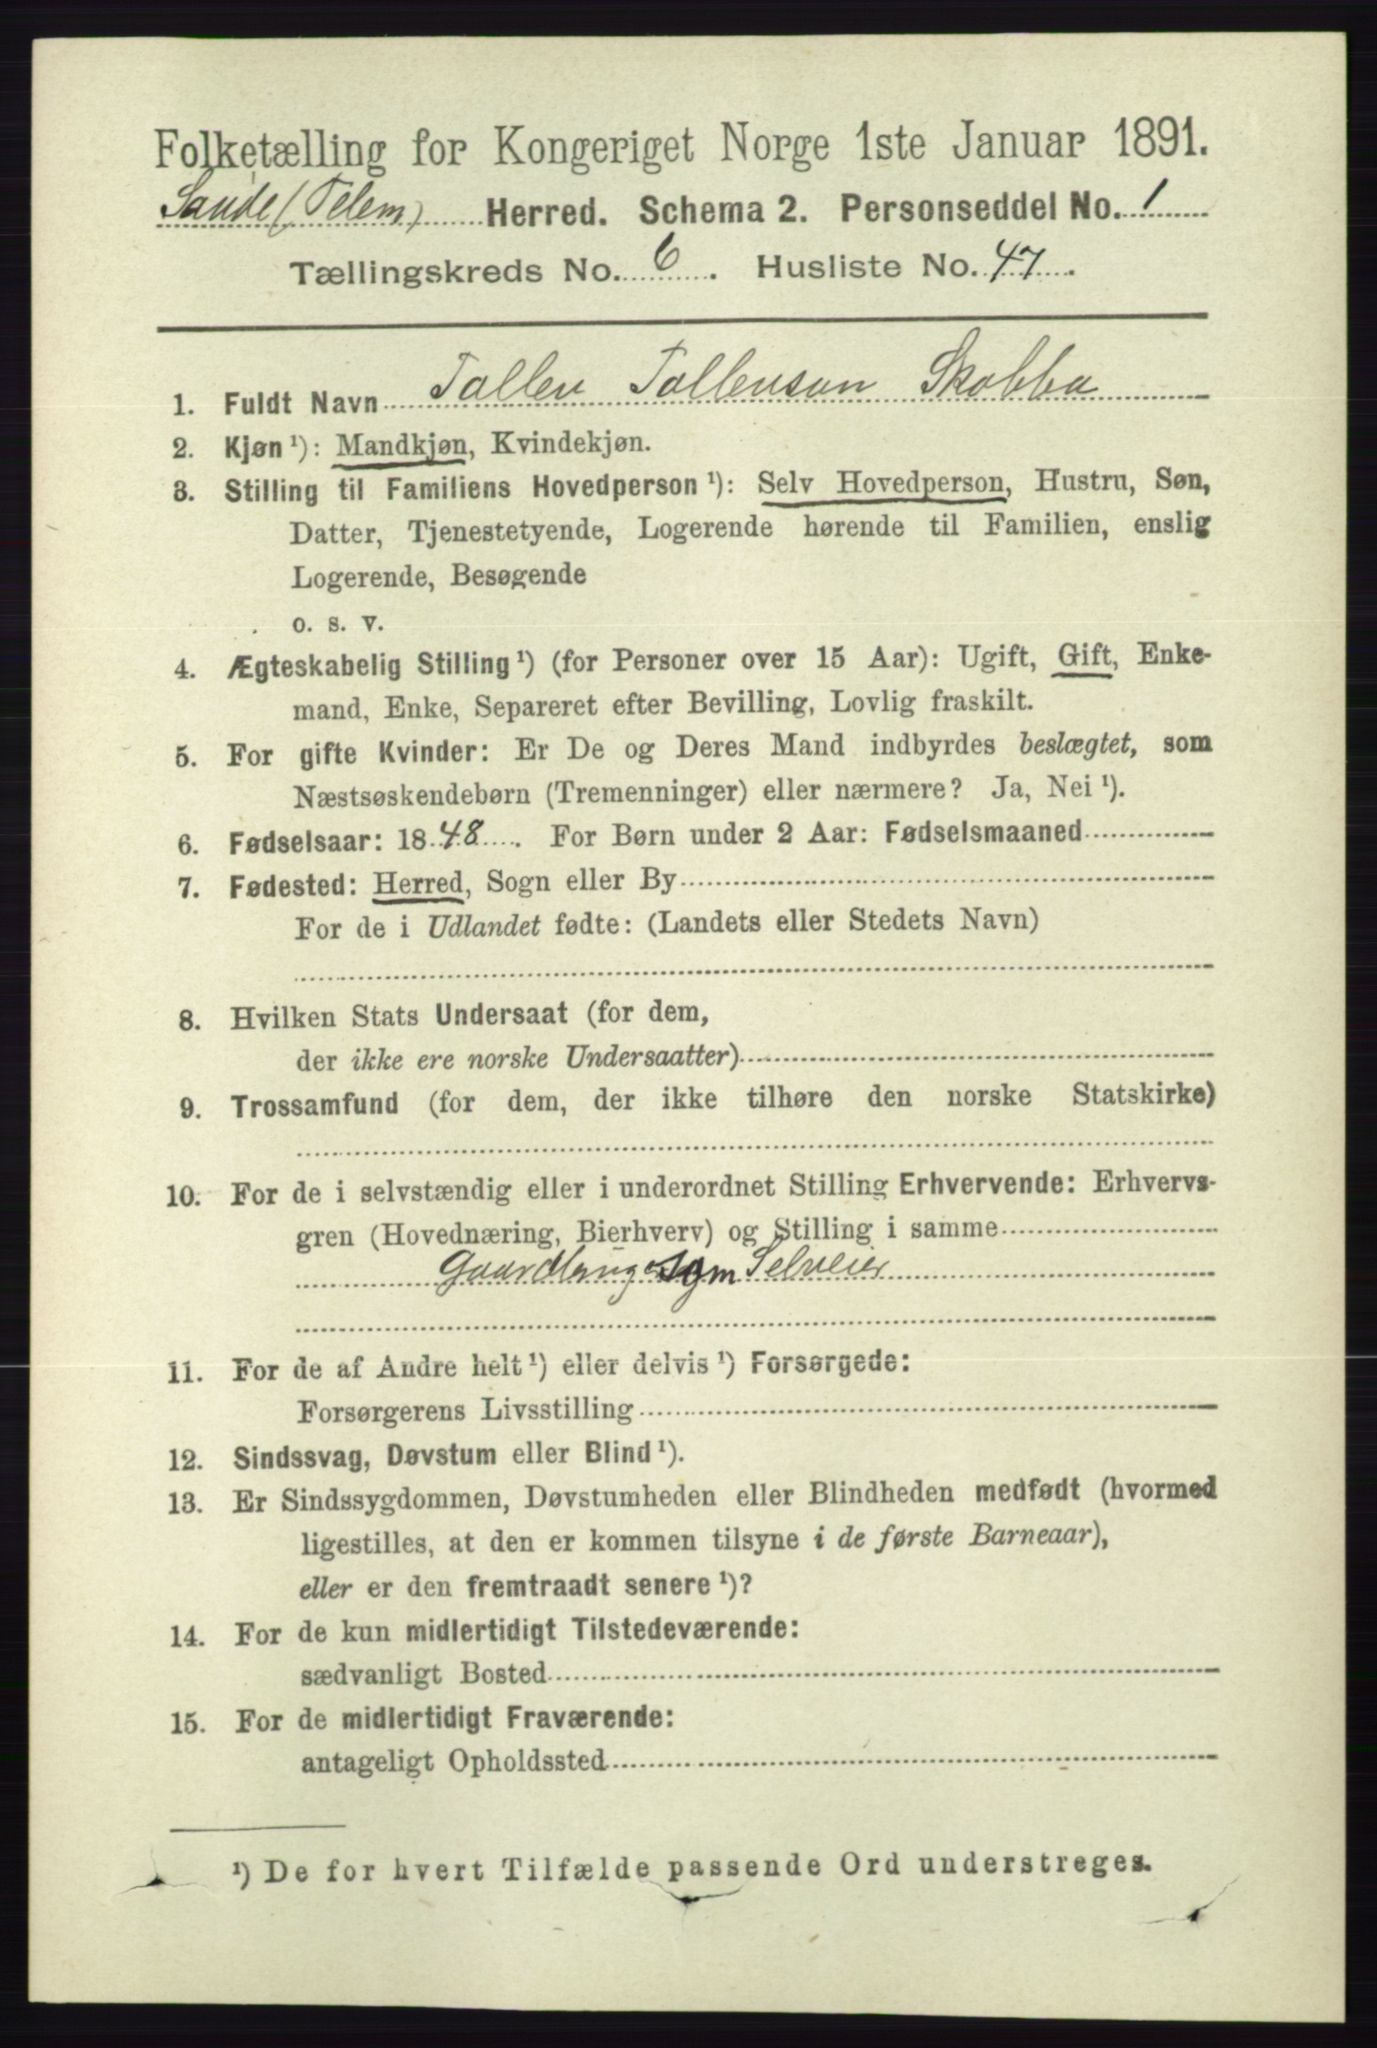 Folketælling for Kongeriget Norge 1ste Januar 1891.
Saude (Telem) Herred. Schema 2. Personseddel No. 1
Tællingskreds No. 6. Husliste No. 47.
1. Fuldt Navn Tallev Tallevsen Skobba
2. Kjøn ¹): Mandkjøn, Kvindekjøn.
3. Stilling til Familiens Hovedperson ¹): Selv Hovedperson, Hustru, Søn,
Datter, Tjenestetyende, Logerende hørende til Familien, enslig
Logerende, Besøgende
o. s. v.
4. Ægteskabelig Stilling ¹) (for Personer over 15 Aar): Ugift, Gift, Enke-
mand, Enke, Separeret efter Bevilling, Lovlig fraskilt.
5. For gifte Kvinder: Er De og Deres Mand indbyrdes beslægtet, som
Næstsøskendebørn (Tremenninger) eller nærmere? Ja, Nei ¹).
6. Fødselsaar: 1848. For Børn under 2 Aar: Fødselsmaaned
7. Fødested: Herred, Sogn eller By
For de i Udlandet fødte: (Landets eller Stedets Navn)
8. Hvilken Stats Undersaat (for dem,
der ikke ere norske Undersaatter)
9. Trossamfund (for dem, der ikke tilhøre den norske Statskirke)
10. For de i selvstændig eller i underordnet Stilling Erhvervende: Erhvervs-
gren (Hovednæring, Bierhverv) og Stilling i samme
som Selveier
11. For de af Andre helt ¹) eller delvis ¹) Forsørgede:
Forsørgerens Livsstilling
12. Sindssvag, Døvstum eller Blind ¹).
13. Er Sindssygdommen, Døvstumheden eller Blindheden medfødt (hvormed
ligestilles, at den er kommen tilsyne i de første Barneaar),
eller er den fremtraadt senere ¹)?
14. For de kun midlertidigt Tilstedeværende:
sædvanligt Bosted
15. For de midlertidigt Fraværende:
antageligt Opholdssted
¹) De for hvert Tilfælde passende Ord understreges.